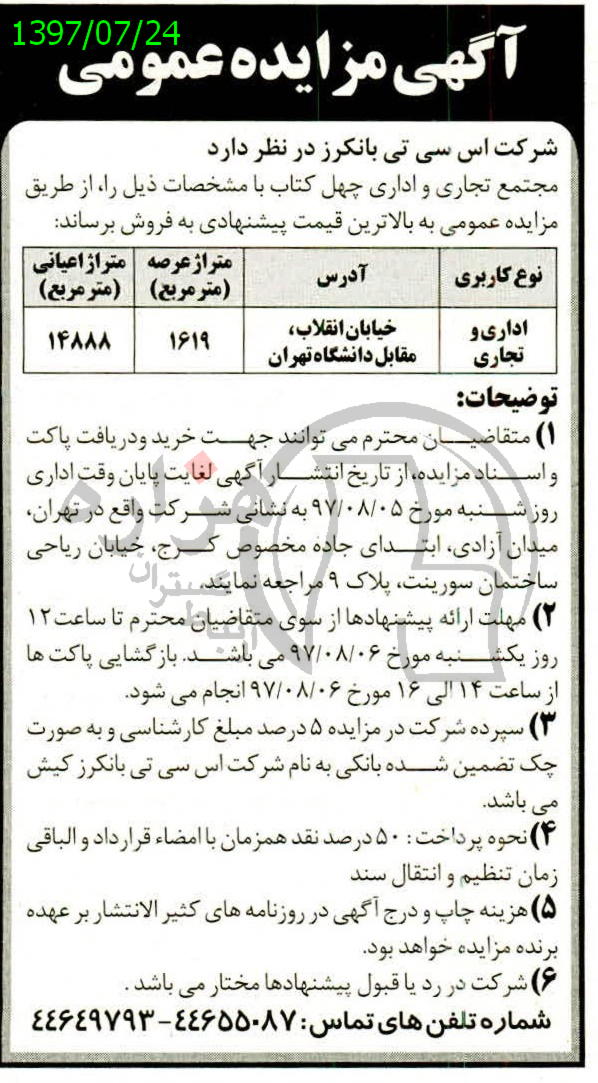 1397/07/24
آگهی مزایده عمومی
شرکت اس سی تی بانکرز در نظر دارد
مجتمع تجاری و اداری چهل کتاب با مشخصات ذیل را، از طریق
مزایده عمومی به بالاترین قیمت پیشنهادی به فروش برساند:
نوع کاربری آدرس متراژ عرصه (متر مربع) متراژ اعیانی (متر مربع)
اداری و تجاری خیابان انقلاب، مقابل دانشگاه تهران ۱۶۱۹ ۱۴۸۸۸
توضیحات:
۱) متقاضیان محترم می توانند جهت خرید ودریافت پاکت
و اسناد مزایده، از تاریخ انتشار آگهی لغایت پایان وقت اداری
روز شنبه مورخ ۹۷/۰۸/۰۵ به نشانی شرکت واقع در تهران،
میدان آزادی، ابتدای جاده مخصوص کرج، خیابان ریاحی
ساختمان سورینت، پلاک ۹ مراجعه نمایند.
۲) مهلت ارائه پیشنهادها از سوی متقاضیان محترم تا ساعت ۱۲
روز یکشنبه مورخ ۹۷/۰۸/۰۶ می باشد. بازگشایی پاکت ها
از ساعت ۱۴ الی ۱۶ مورخ ۹۷/۰۸/۰۶ انجام می شود.
۳) سپرده شرکت در مزایده ۵ درصد مبلغ کارشناسی و به صورت
چک تضمین شده بانکی به نام شرکت اس سی تی بانکرز کیش
می باشد.
۴) نحوه پرداخت: ۵۰ درصد نقد همزمان با امضاء قرارداد و الباقی
زمان تنظیم و انتقال سند
۵) هزینه چاپ و درج آگهی در روزنامه های کثیر الانتشار بر عهده
برنده مزایده خواهد بود.
۶) شرکت در رد یا قبول پیشنهادها مختار می باشد.
شماره تلفن های تماس: ۴۴۶۵۵۰۸۷ - ۴۴۶۴۹۷۹۳
هزاره
گستران